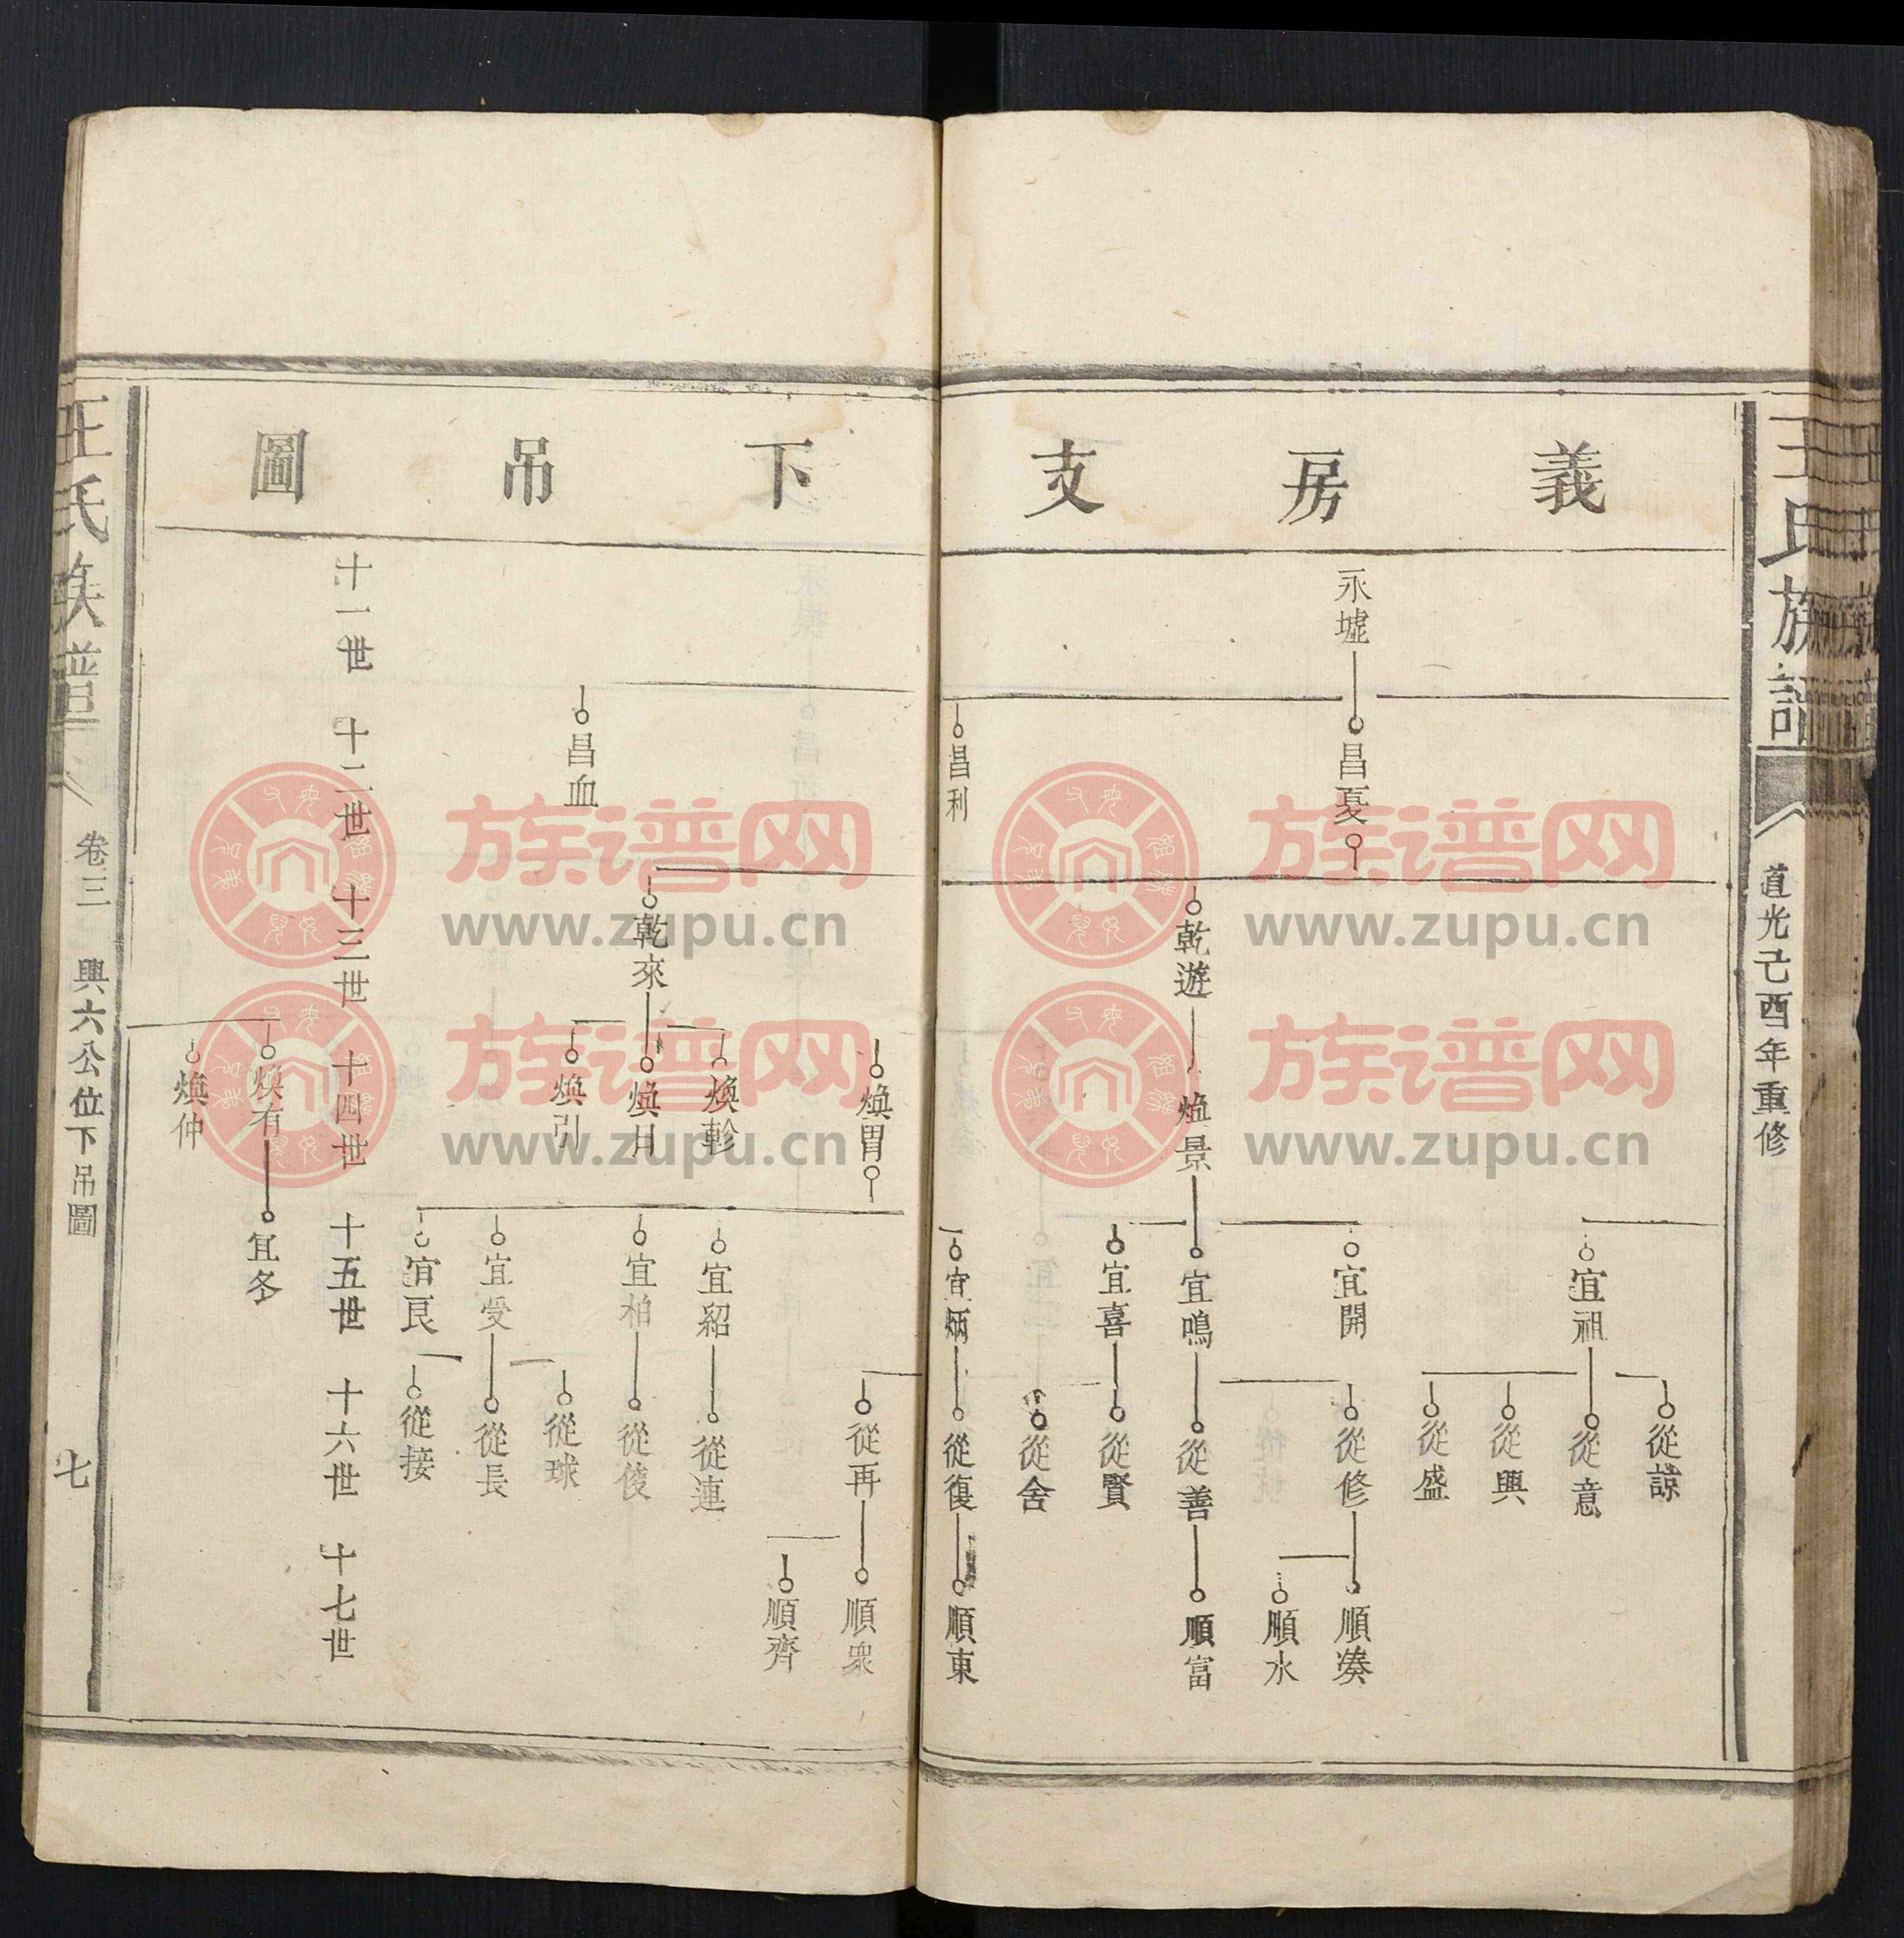 王氏族譜
道光己酉年重修
義房支下吊圖
永墟
昌夏
昌利
昌血
乾遊
乾來
煥景
煥冑
煥軫
煥日
煥引
煥有
煥仲
宜祖
宜開
宜鳴
宜喜
宜炳
宜紹
宜柏
宜受
宜良
宜冬
從諒
從意
從興
從盛
從修
從善
從賢
從舍
從復
從再
從連
從俊
從球
從長
從接
順湊
順水
順富
順東
順衆
順齊
十一世
十二世
十三世
十四世
十五世
十六世
十七世
王氏族譜
卷三
興六公位下吊圖
七
族谱网
www.zupu.cn
族谱网
www.zupu.cn
族谱网
www.zupu.cn
族谱网
www.zupu.cn